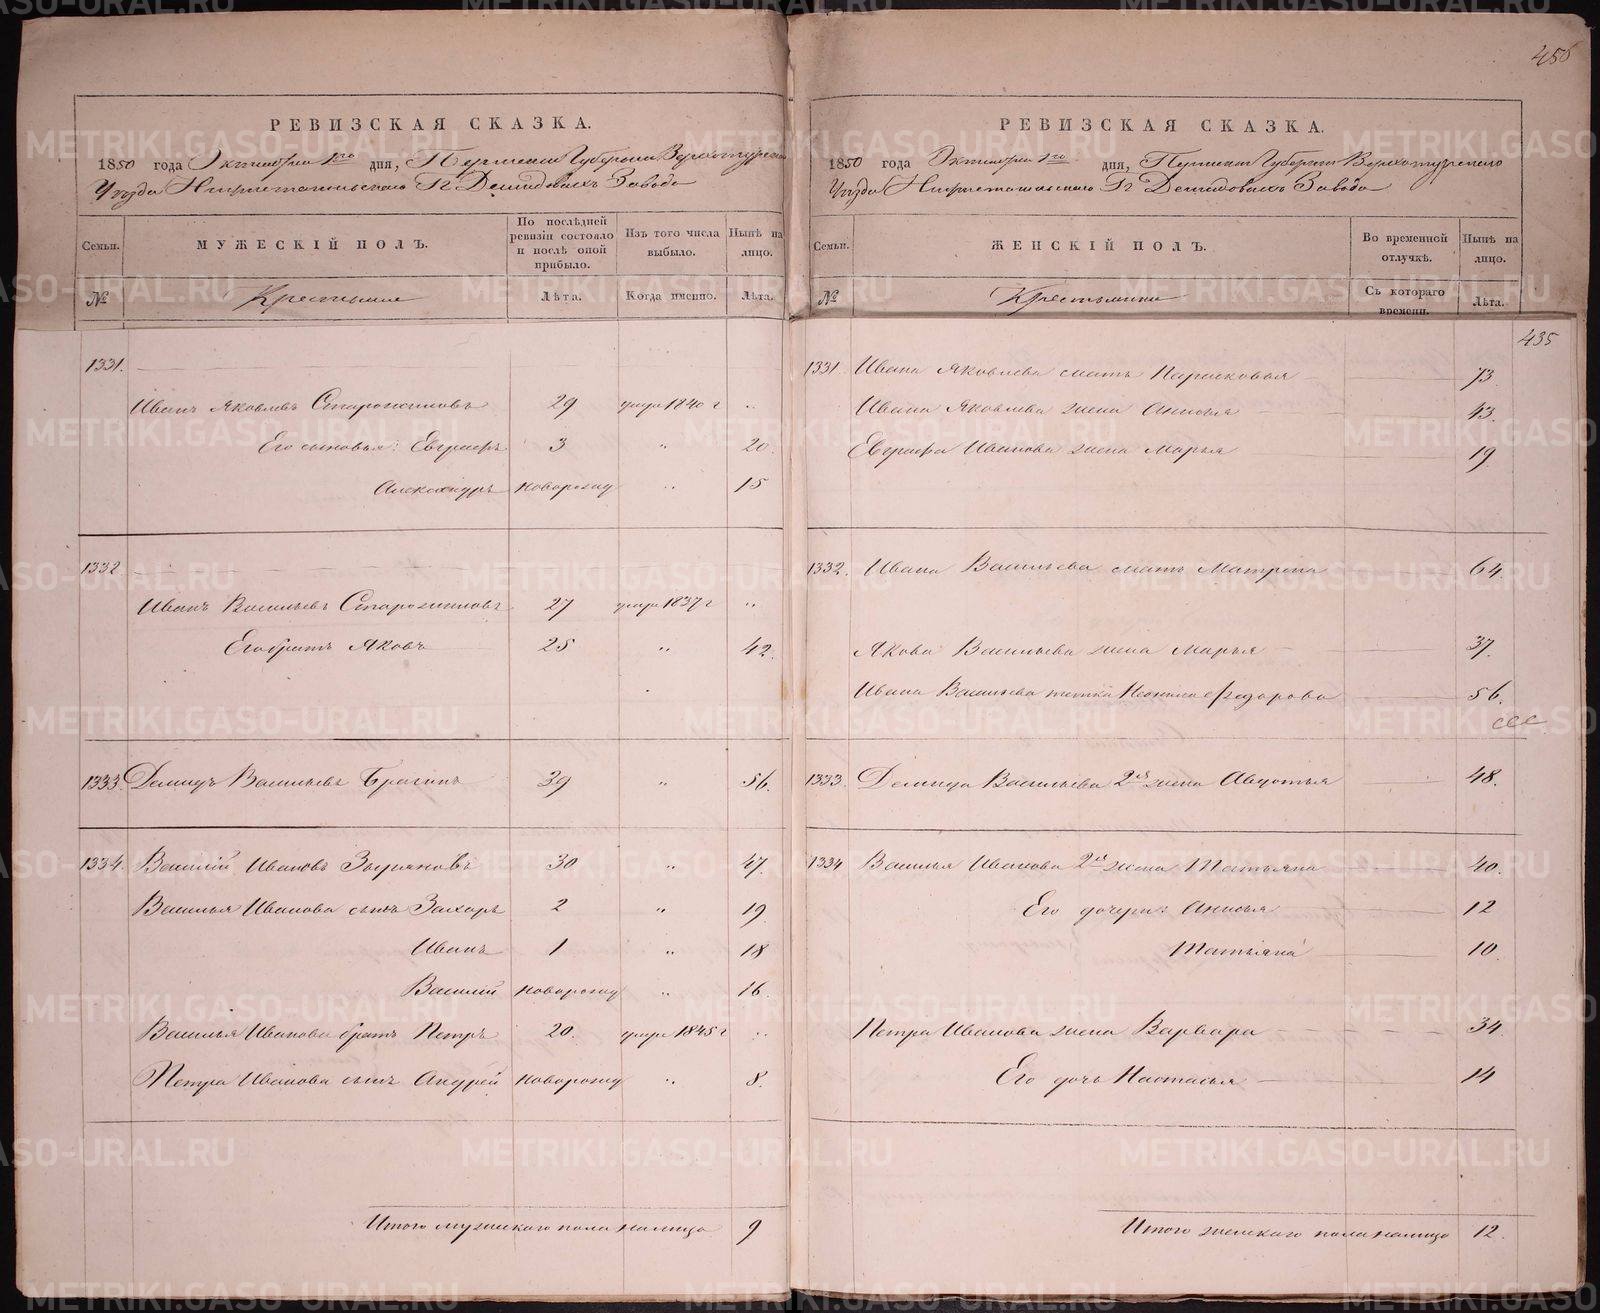 456
РЕВИЗСКАЯ СКАЗКА.
1850 года Октября 1го дня, Пермской Губернии Верхотурскаго
Уѣзда Нижнетагильскаго Гг Демидовыхъ Завода
Семьи.
МУЖЕСКІЙ ПОЛЪ.
По послѣдней ревизіи состояло и послѣ оной прибыло.
Изъ того числа выбыло.
Нынѣ на лицо.
№
Крестьяне
Лѣта.
Когда именно.
Лѣта.
1331.
Иванъ Яковлевъ Старожиловъ 29 умре 1840 г „
Его сыновья: Евграфъ 3 „ 20.
Александръ новорожд „ 15
1332
Иванъ Васильевъ Старожиловъ 27 умре 1837 г „
Его братъ Яковъ 25 „ 42.
1333. Демидъ Васильевъ Брагинъ 39 „ 56.
1334. Василій Ивановъ Зыряновъ 30 „ 47.
Василья Иванова сынъ Захаръ 2 „ 19
Иванъ 1 „ 18
Василій новорожд „ 16.
Василья Иванова братъ Петръ 20. умре 1845 г „
Петра Иванова сынъ Андрей новорожд „ 8.
Итого мужескаго пола налицо 9
РЕВИЗСКАЯ СКАЗКА.
1850 года Октября 1го дня, Пермской Губерніи Верхотурскаго
Уѣзда Нижнетагильскаго Гг Демидовыхъ Завода
Семьи.
ЖЕНСКІЙ ПОЛЪ.
Во временной отлучкѣ.
Нынѣ на лицо.
№
Крестьянки
Съ котораго времени.
Лѣта.
435
1331. Ивана Яковлева мать Парасковья 73
Ивана Яковлева жена Анисья 43.
Евграфа Иванова жена Марья 19
1332. Ивана Васильева мать Матрена 64.
Якова Васильева жена Марья 37.
Ивана Васильева тетка Неонила Федорова 56.
1333. Демида Васильева 2я жена Авдотья 48.
1334 Василья Иванова 2я жена Татьяна 40.
Его дочери: Анисья 12
Татьяна 10.
Петра Иванова жена Варвара 34
Его дочь Настасья 14
Итого женскаго пола налицо 12.
METRIKI.GASO-URAL.RU